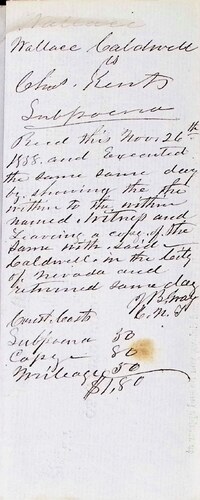 Wallace Caldwell
vs
Chas. Kents
Subpoena
Recd this Nov. 26th
1888. and Executed
the same same day
by showing the the
within to the within
named Witness and
Leaving a copy of the
Same with said
Caldwell. in the City
of Nevada and
returned same day
Const. Costs
Subpoena 50
Copy 80
Mileage 50
$1,80